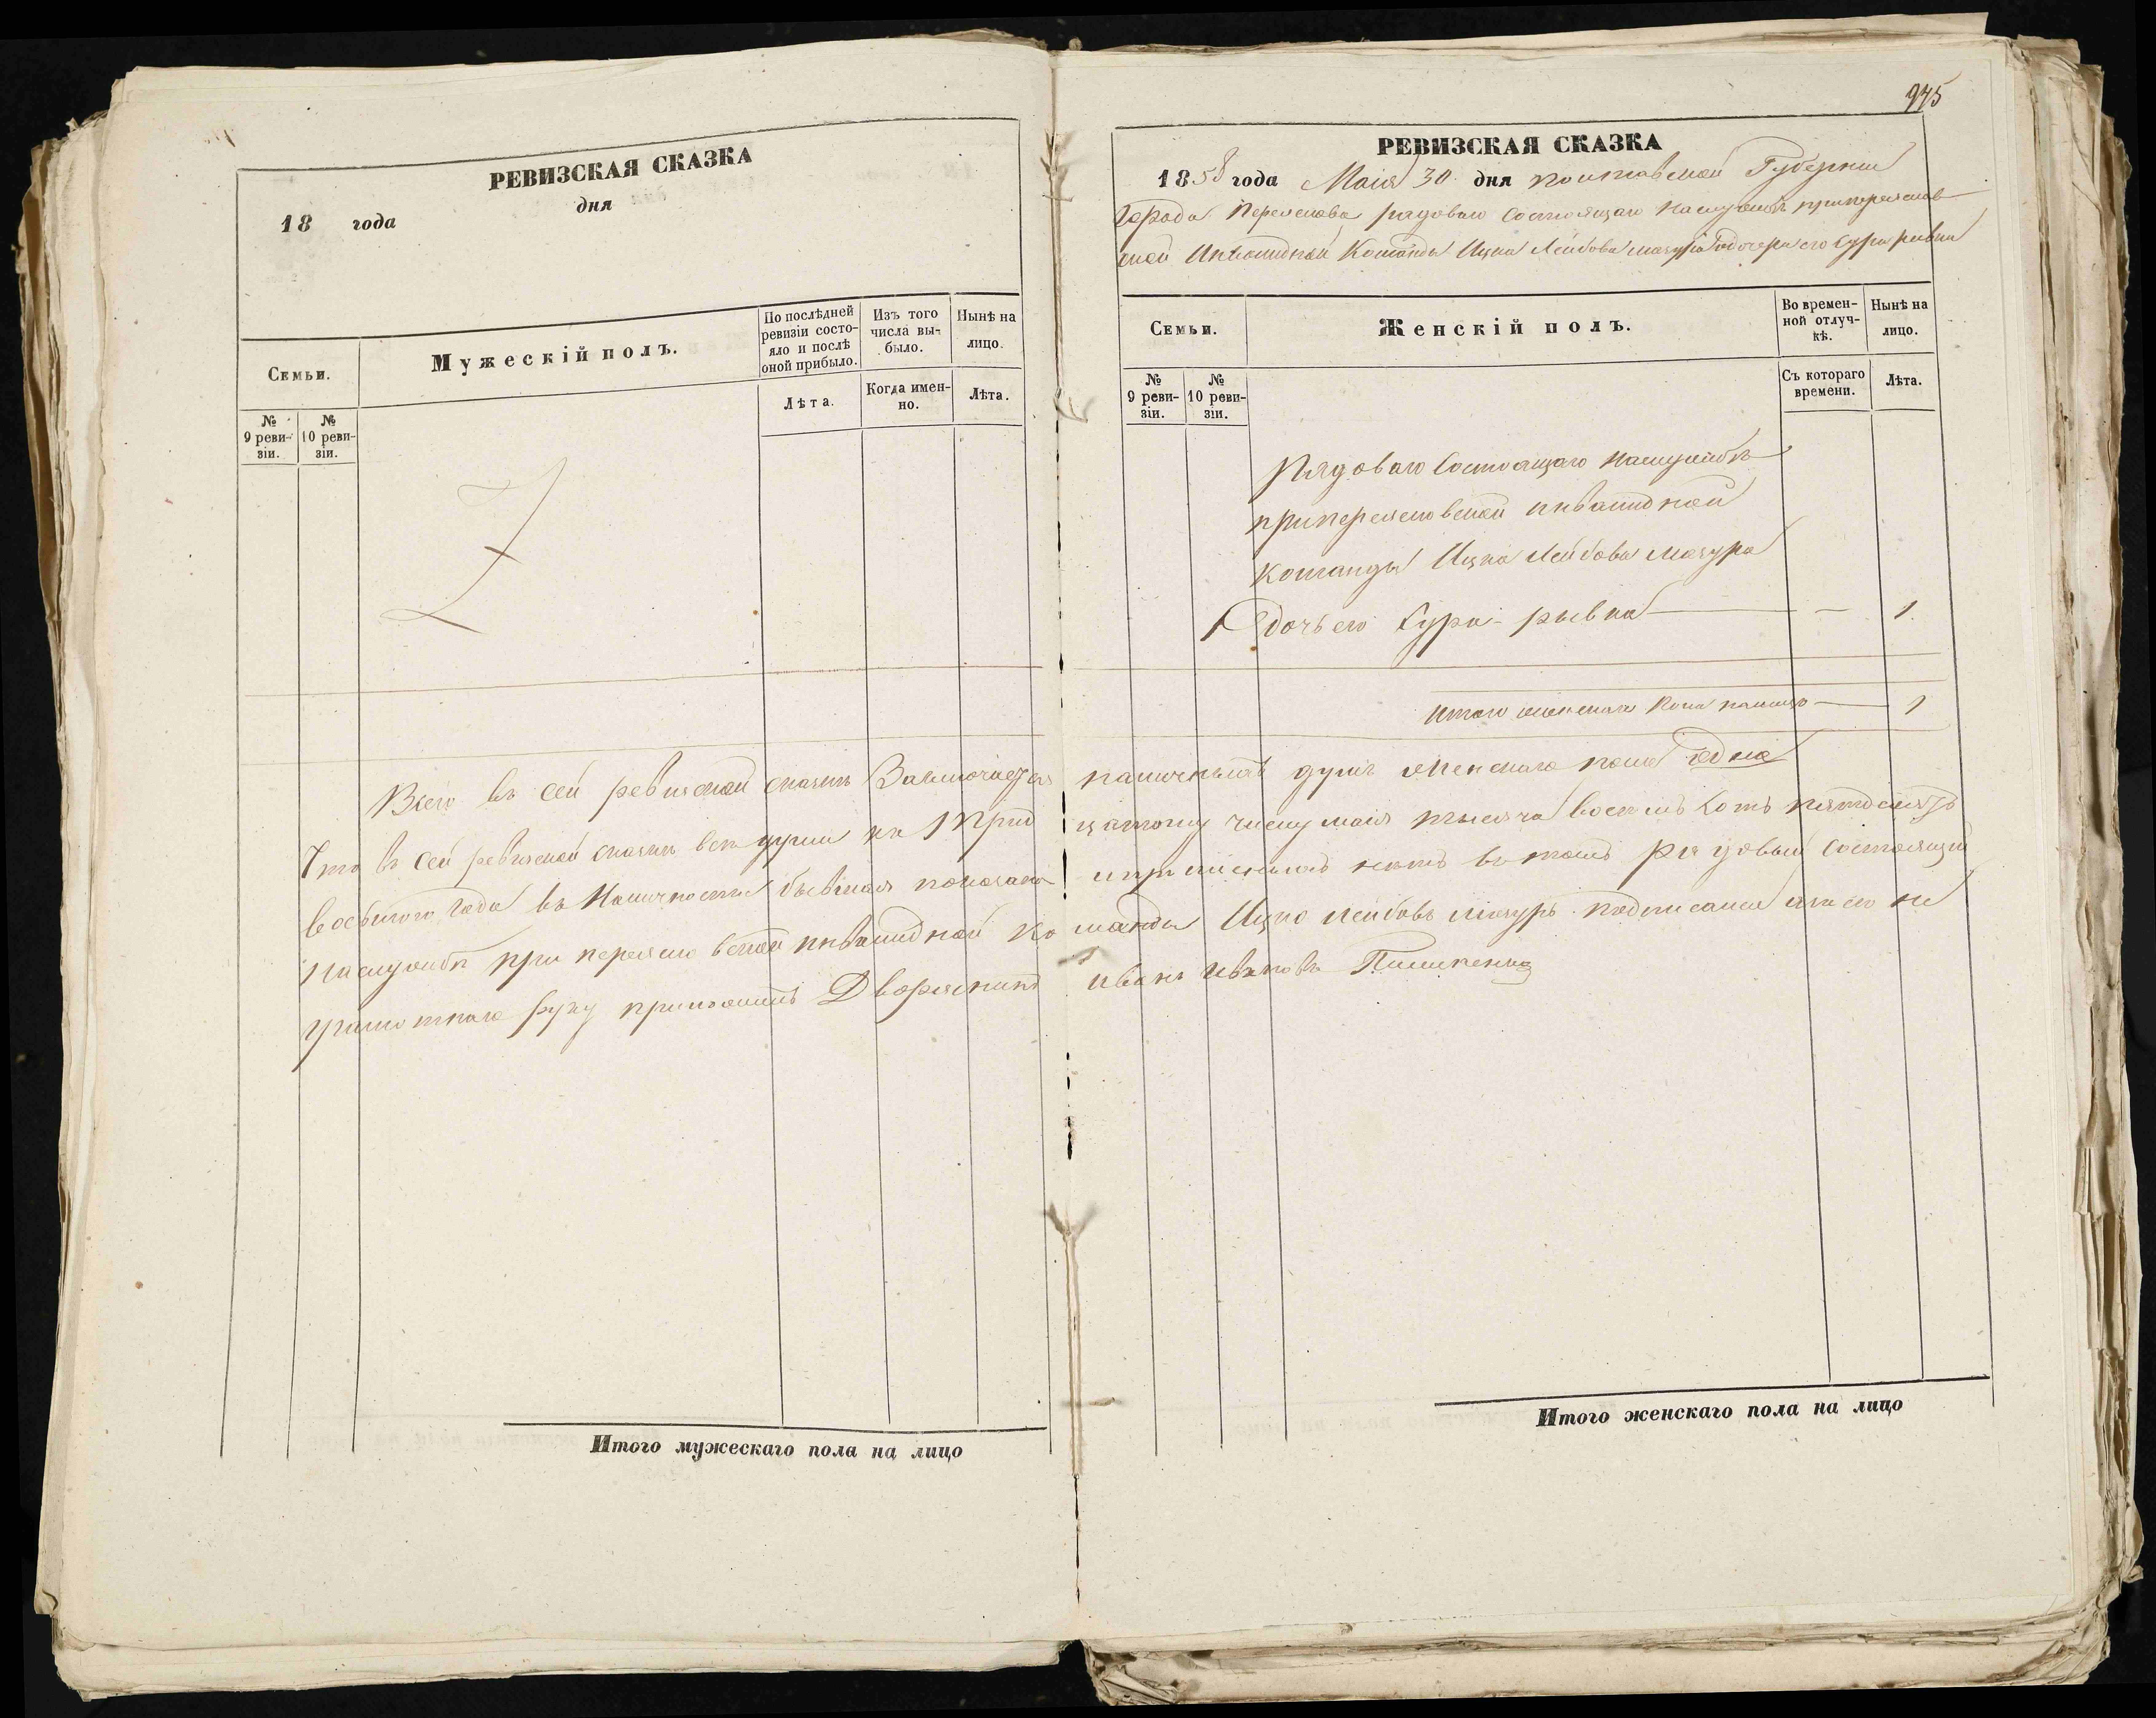 РЕВИЗСКАЯ СКАЗКА
18 года дня
Семьи.
Мужескій полъ.
По послѣдней ревизіи состояло и послѣ оной прибыло.
Изъ того числа выбыло.
Нынѣ на лицо.
№ 9 ревизіи.
№ 10 ревизіи.
Лѣта.
Когда именно.
Лѣта.
975
РЕВИЗСКАЯ СКАЗКА
1858 года Маія 30 дня Полтавской Губерніи
Города Переяслова рядоваго состоящаго наслужбѣ припереяслов
ской Инвалидной Команды Ицка Лейбова Мазура Одочери его Сура рывка
Семьи.
Женскій полъ.
Во временной отлучкѣ.
Нынѣ на лицо.
№ 9 ревизіи.
№ 10 ревизіи.
Съ котораго времени.
Лѣта.
Рядоваго Состоящаго наслужбѣ
припереясловской инвалидной
Команды Ицка Лейбова Мазура
1 дочь его Сура-рывка — — 1
Итого женскаго пола налицо — 1
Всего въ сей ревизской сказкѣ Заключается наличныхъ душъ женскаго пола одна
Что въ сей ревизской сказкѣ все души по 1 Трид цатому числу маія тысяча восемь сотъ пятдесятъ
восьмого года въ Наличности бывшая показана и прописныхъ нѣтъ въ томъ рядовый Состоящій
Наслужбѣ при переясловской инвалидной ко манды Ицко Лейбовъ Мазуръ подписался а за его не
грамотнаго руку приложилъ Дворянинъ Иванъ Ивановъ
Итого мужескаго пола на лицо
Итого женскаго пола на лицо